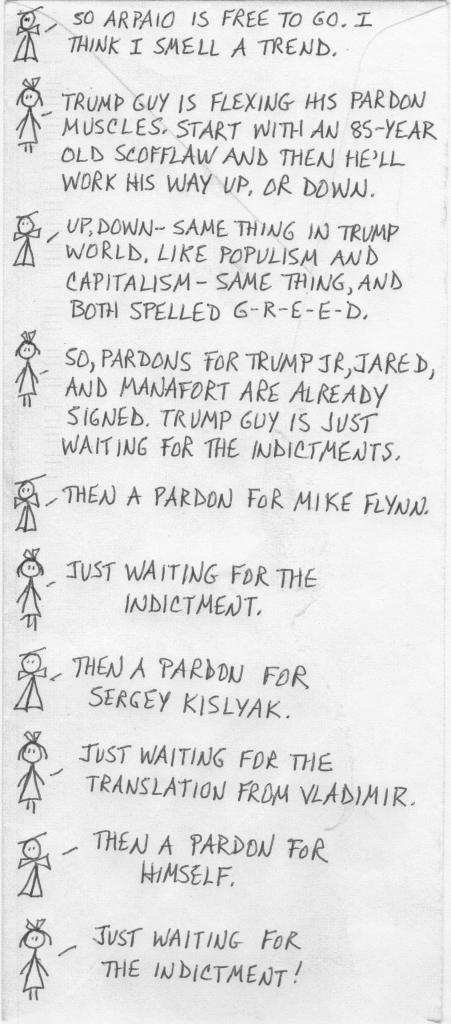 SO ARPAIO IS FREE TO GO. I
THINK I SMELL A TREND.
TRUMP GUY IS FLEXING HIS PARDON
MUSCLES. START WITH AN 85-YEAR
OLD SCOFFLAW AND THEN HE'LL
WORK HIS WAY UP. OR DOWN.
UP, DOWN- SAME THING IN TRUMP
WORLD. LIKE POPULISM AND
CAPITALISM- SAME THING, AND
BOTH SPELLED G-R-E-E-D.
SO, PARDONS FOR TRUMP JR, JARED,
AND MANAFORT ARE ALREADY
SIGNED. TRUMP GUY IS JUST
WAITING FOR THE INDICTMENTS.
THEN A PARDON FOR MIKE FLYNN.
JUST WAITING FOR THE
INDICTMENT.
THEN A PARDON FOR
SERGEY KISLYAK.
JUST WAITING FOR THE
TRANSLATION FROM VLADIMIR.
THEN A PARDON FOR
HIMSELF.
JUST WAITING FOR
THE INDICTMENT!